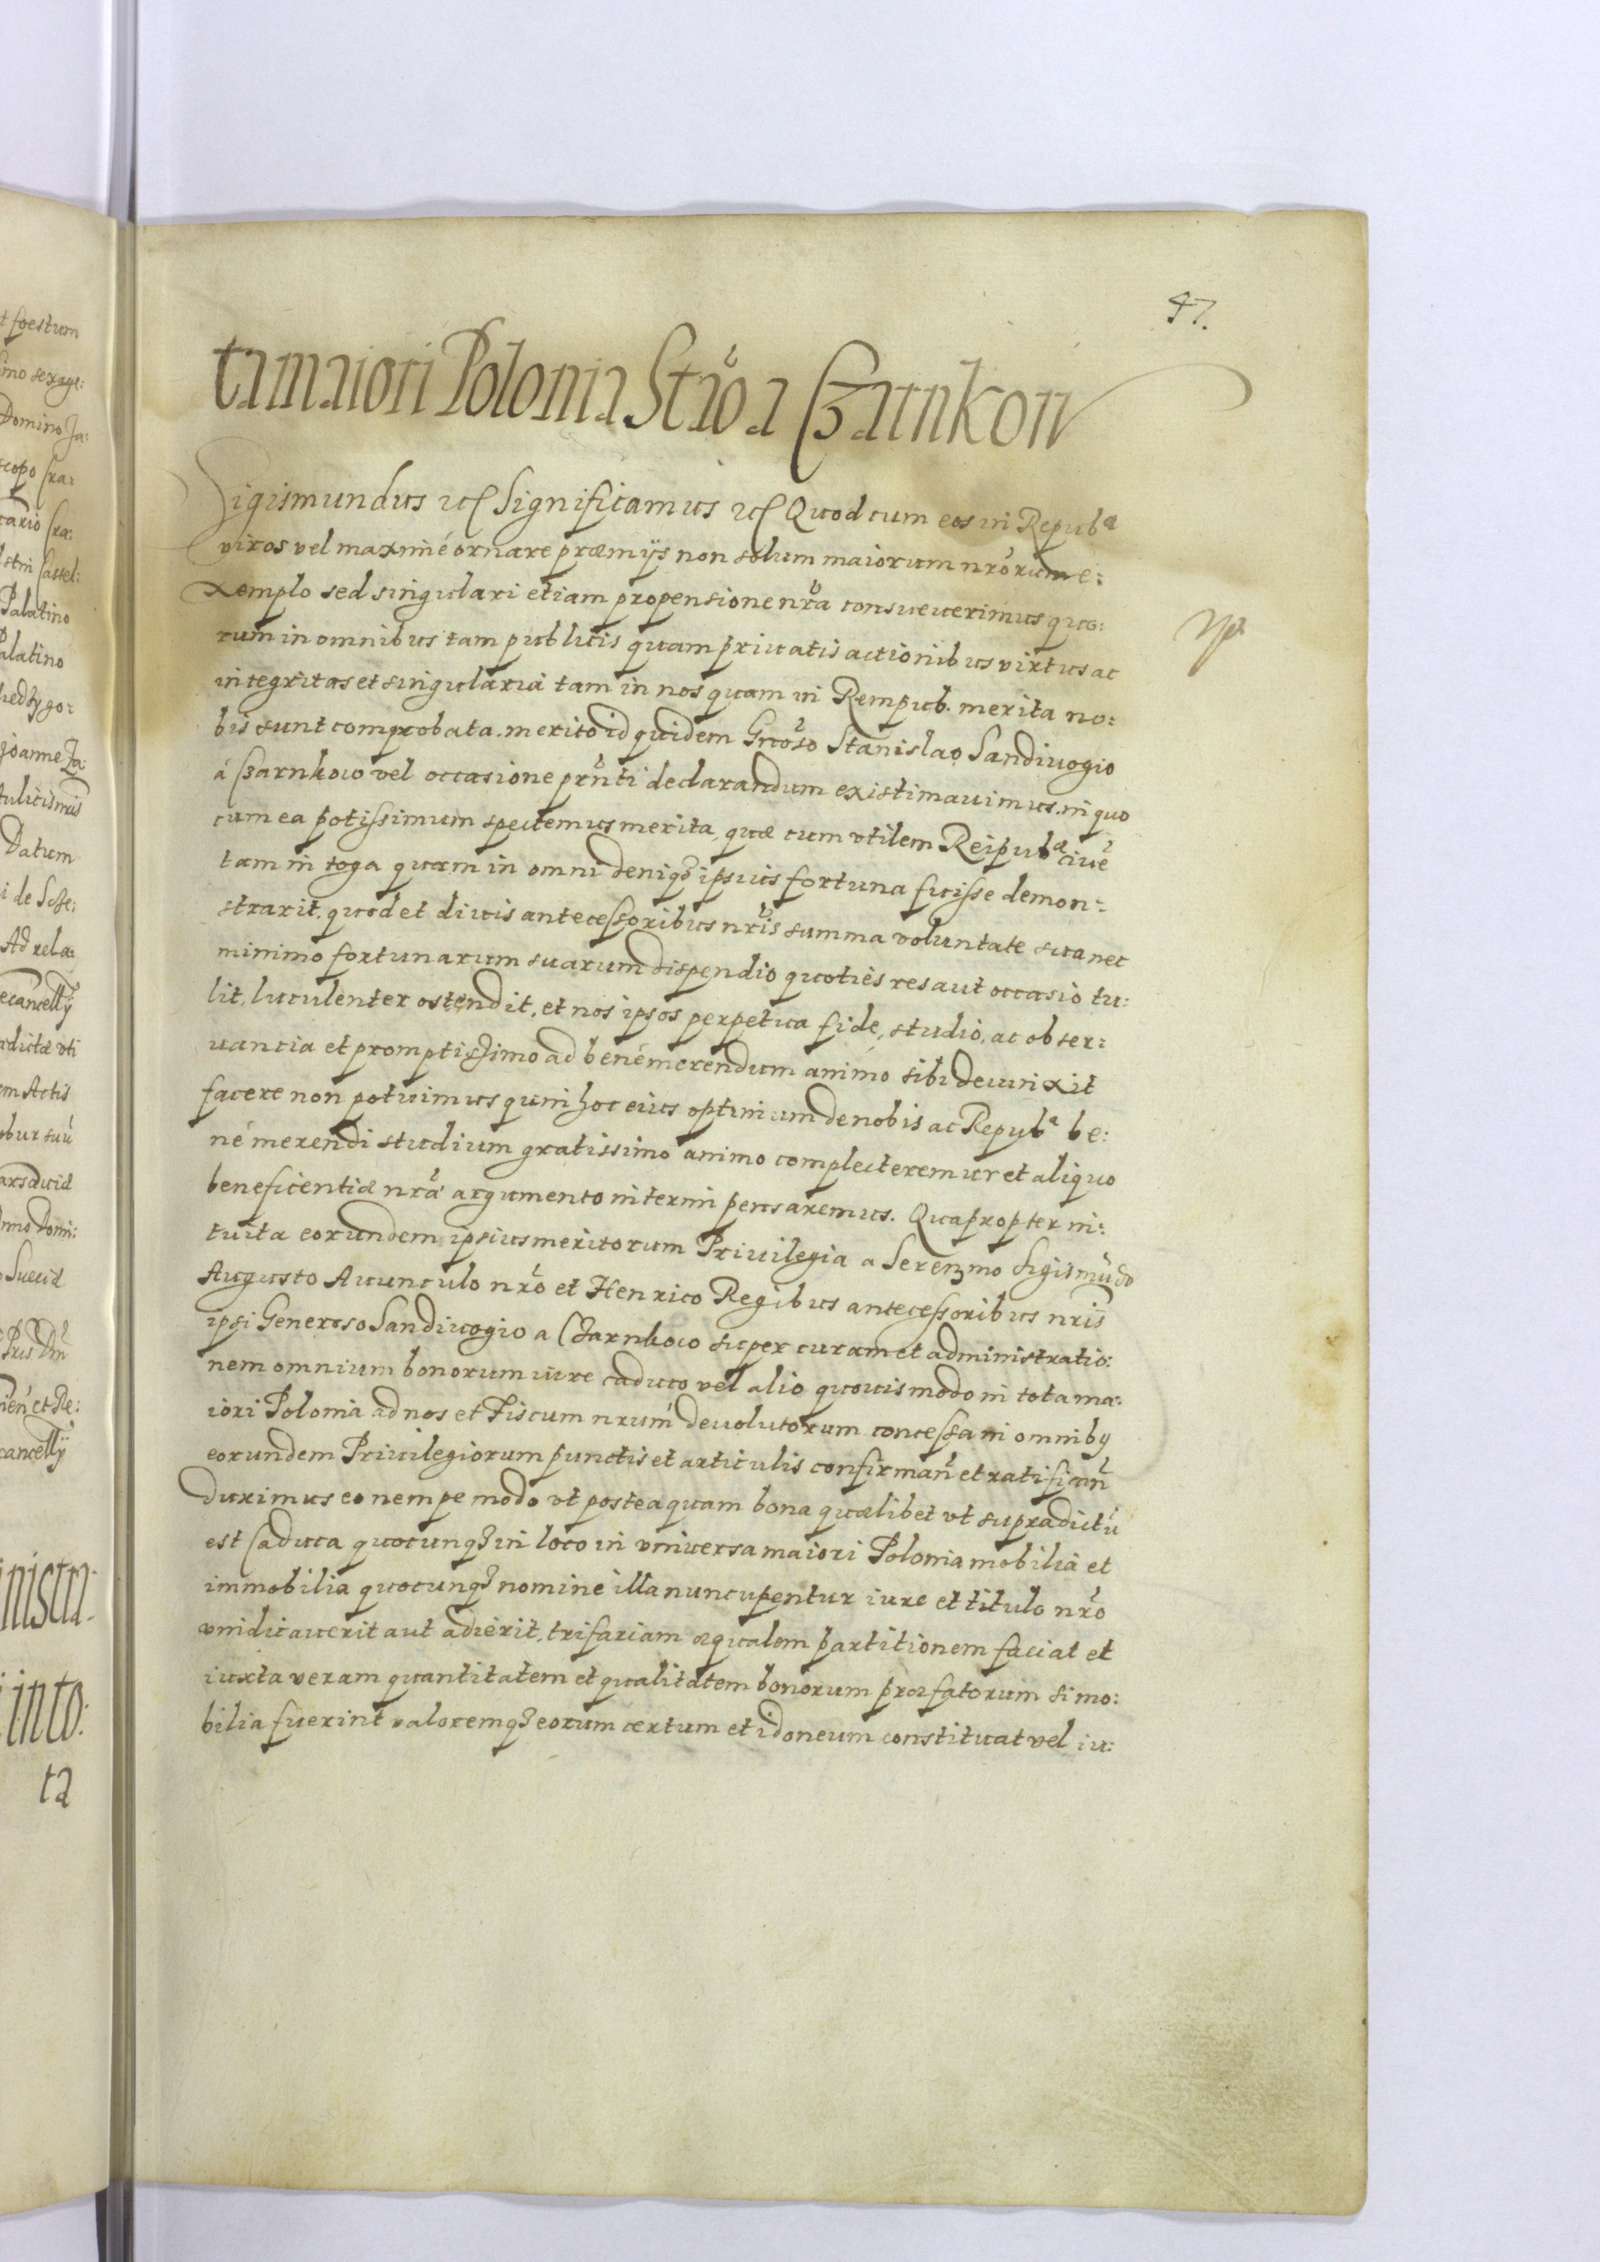 t foestum
simo sexage:
Domino Ja:
scopo Cra:
cario Cra:
Castel:
Palatino
Palatino
Joanne Za:
Datum
Ad rela:
ecancellÿ
adictæ vti
em Actis
obur suũ
Anno Domi:
Sueciæ
cancellÿ
inistra:
i into:
ta
47.
ta maiori Polonia Stño a Czarnkow
Sigismundus etc Significamus etc Quod cum eos in Repubᵃ
viros vel maximé ornare præmÿs non solum maiorum nrõrum e:
xemplo sed singulari etiam propensione nrã consueuerimus quo:
rum in omnibus tam publicis quam priuatis actionibus virtus ac
integritas et singularia tam in nos quam in Rempub. merita no:
bis sunt comprobata. merito id quidem Gñoso Stanislao Sandiuogio
á Czarnkow vel occasione prñti declarandum existimauimus. in quo
cum ea potissimum spectemus merita, quæ cum vtilem Reipubᵃᵉ ciuẽ
tam in toga quam in omni deniq3 ipsius fortuna fuisse demon:
strarit. quod et diuis antecessoribus nrĩs summa voluntate sua nec
minimo fortunarum suarum dispendio quoties res aut occasio tu:
lit, luculenter ostendit, et nos ipsos perpetua fide, studio, ac obser:
uancia et promptissimo ad bené merendum animo sibi deuinxit
facere non potuimus quin hoc eius optimum de nobis ac Repubᵃ be:
né merendi studium gratissimo animo complecteremur et aliquo
beneficentiæ nrã argumento interim pensaremus. Quapropter in:
tuita eorundem ipsius meritorum Priuilegia a Seren3mo Sigismũdo
Augusto Auunculo nrõ et Henrico Regibus antecessoribus nrĩs
ipsi Generoso Sandiuogio a Czarnkow super curam et administratio:
nem omnium bonorum iure caduco vel alio quouis modo in tota ma:
iori Polonia ad nos et Fiscum nrum̃ deuolutorum concessa in omnibꝯ
eorundem Priuilegiorum punctis et articulis confirmañ et ratificañ
duximus eo nempe modo vt posteaquam bona quælibet vt supradictũ
est Caduca quocunq3 in loco in vniuersa maiori Polonia mobilia et
immobilia quocunq3 nomine illa nuncupentur iure et titulo nrõ
vindicauerit aut adierit, trifariam æqualem partitionem faciat et
iuxta veram quantitatem et qualitatem bonorum præfatorum si mo:
bilia fuerint valoremq3 eorum certum et idoneum constituat vel iu: